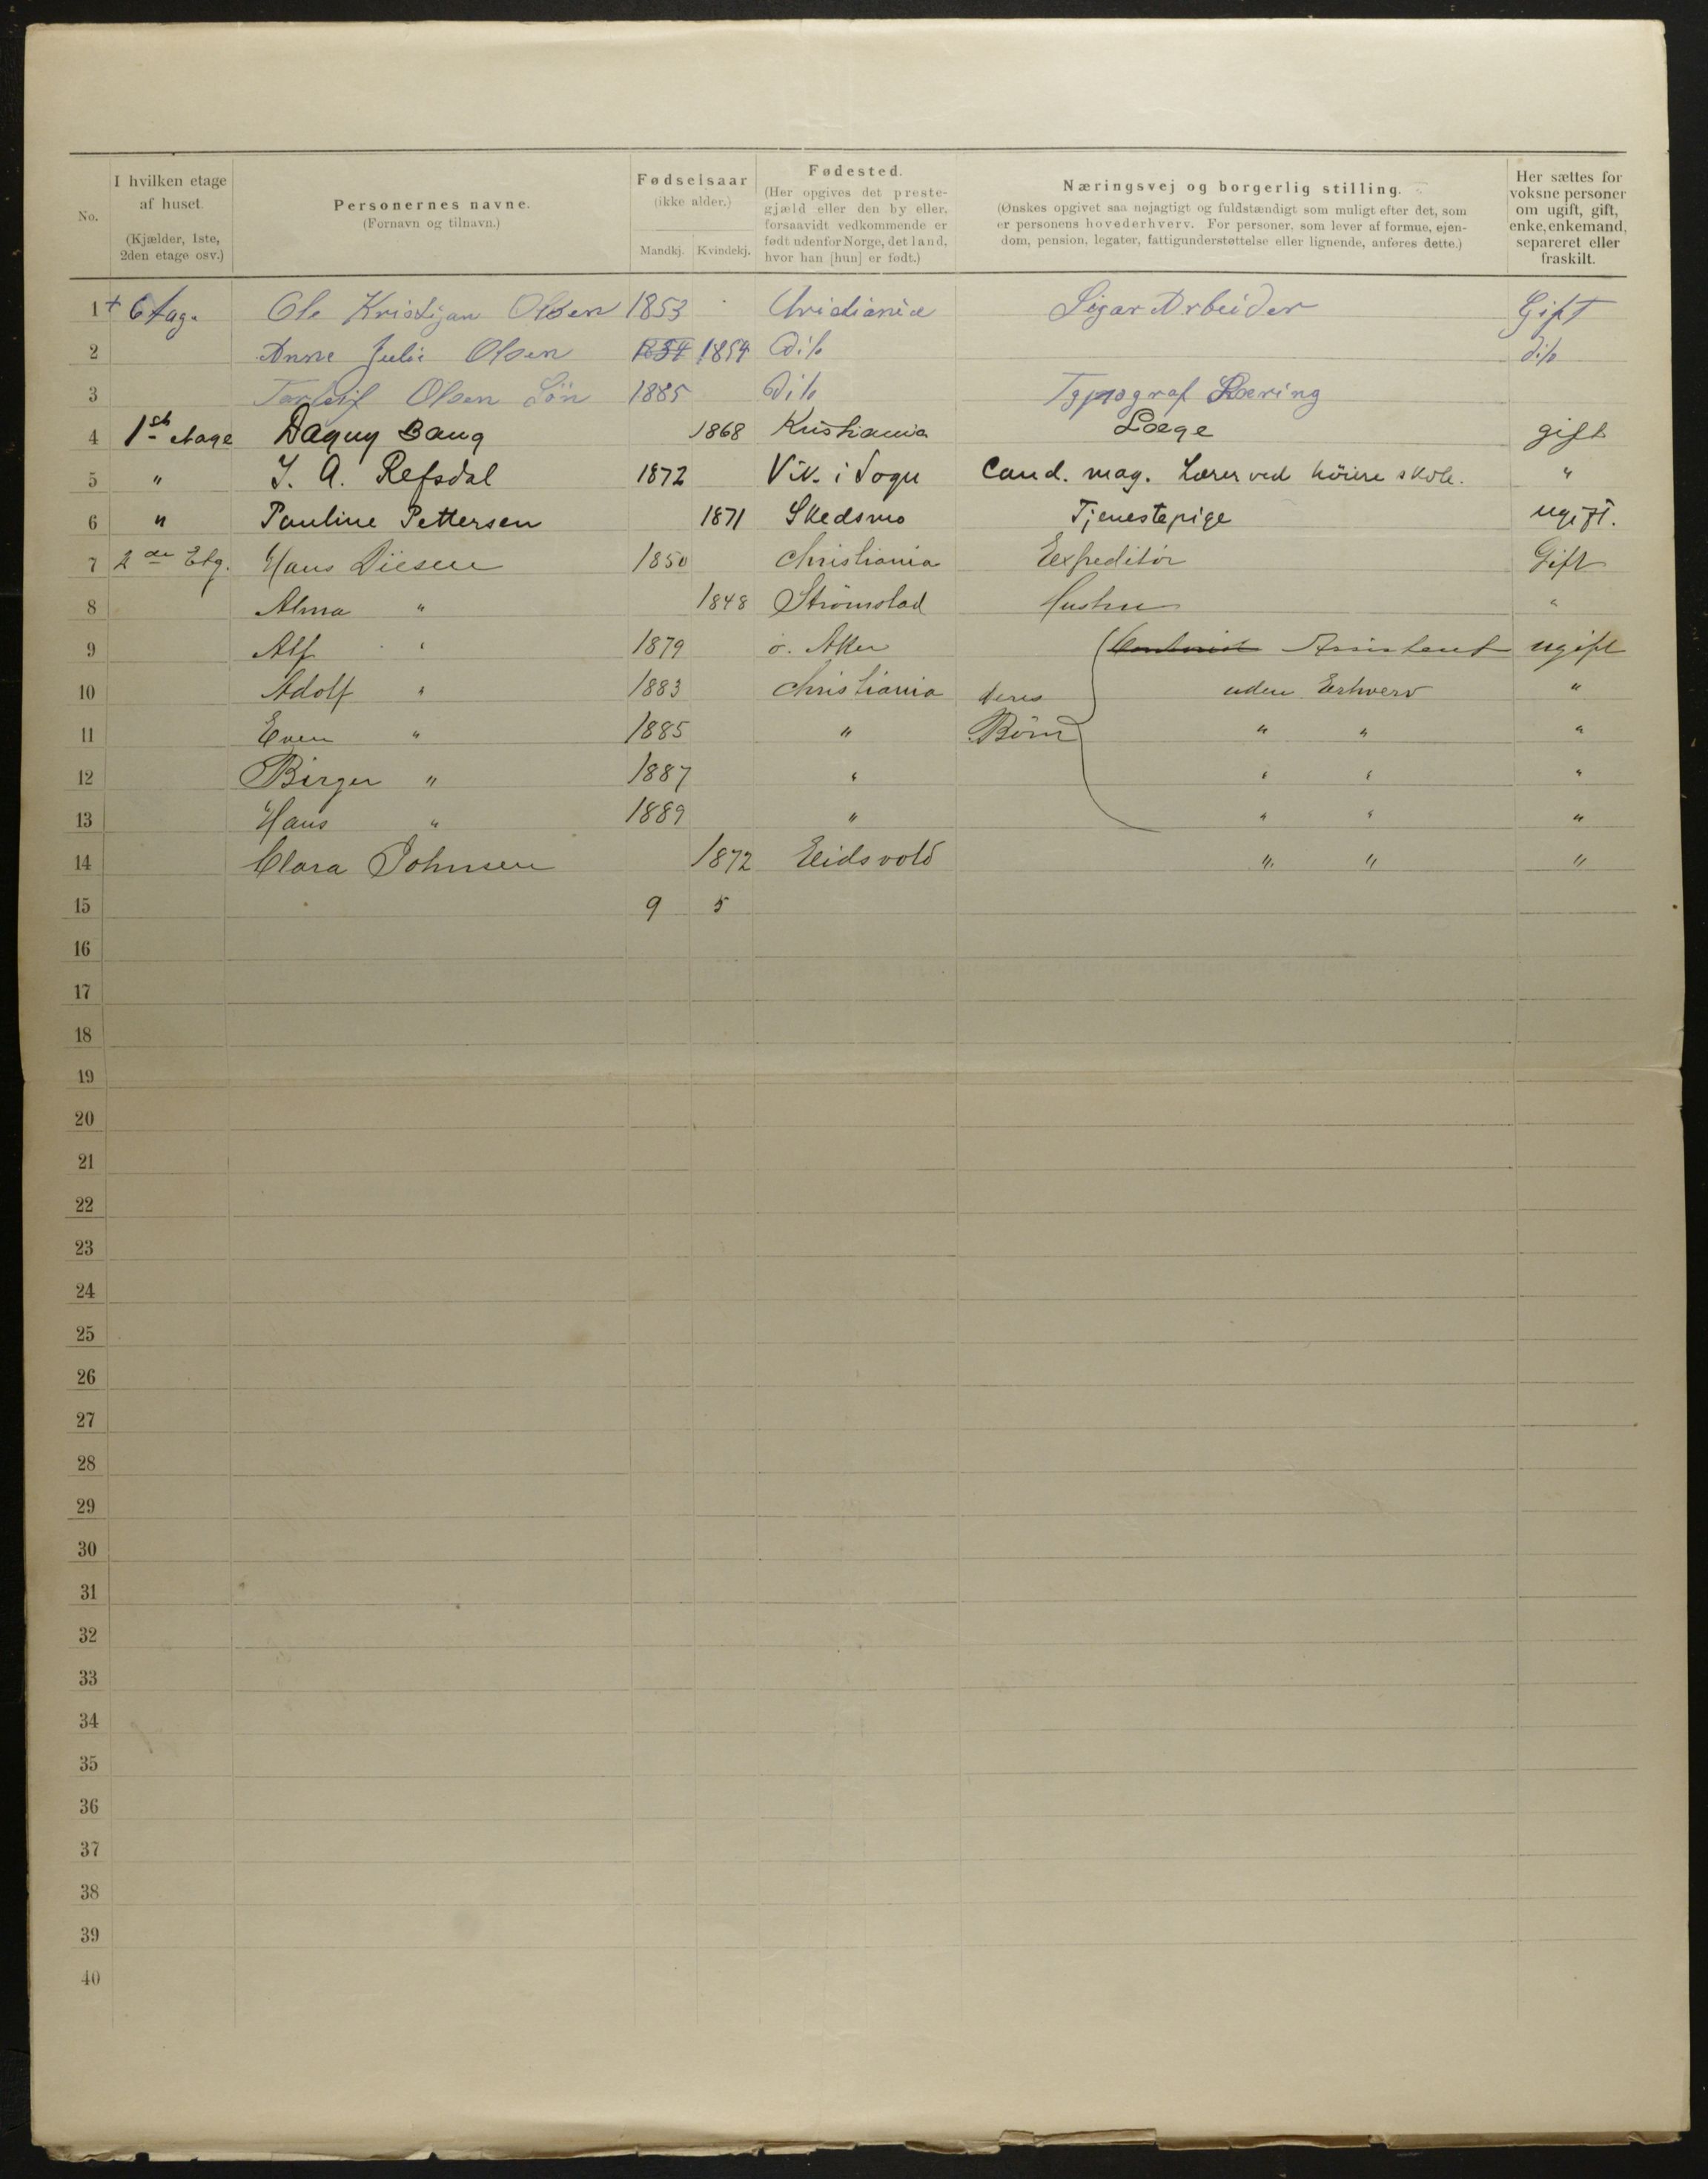 No. I hvilken etage af huset. (Kjælder, 1ste, 2den etage osv.) Personernes navne. (Fornavn og tilnavn.) Fødselsaar (ikke alder.) Mandkj. Kvindekj. Fødested. (Her opgives det prestegjæld eller den by eller, forsaavidt vedkommende er født udenfor Norge, det land, hvor han [hun] er født.) Næringsvej og borgerlig stilling. (Ønskes opgivet saa nøjagtigt og fuldstændigt som muligt efter det, som er personens hovederhverv. For personer, som lever af formue, ejendom, pension, legater, fattigunderstøttelse eller lignende, anføres dette.) Her sættes for voksne personer om ugift, gift, enke, enkemand, separeret eller fraskilt.
1 + Etag. Ole Kristjan Olsen 1853 Sigar Arbeider Gift
2 Anne Julie Olsen 1854 Dito dito
3 Olsen Sön 1885 Dito Typograf Læring
4 1st etage Dagny Bang 1868 Kristiania Læge gift
5 " J. A. Refsdal 1872 Vik i Sogn Cand. mag. Lærer ved höiere skole. "
6 " Pauline Pettersen 1871 Skedsmo Tjenestepige ugift.
7 2den Etg. Hans Diesen 1850 Christiania Expeditör Gift
8 Alma " 1848 Strömstad Hustru "
9 Alf " 1879 ö. Aker Assistent ugift
10 Adolf " 1883 Christiania deres uden Erhverv "
11 Even " 1885 " Börn " " "
12 Birger " 1887 " " " "
13 Hans " 1889 " " " "
14 Clara Johnsen 1872 Eidsvold " " "
15 9 5
16
17
18
19
20
21
22
23
24
25
26
27
28
29
30
31
32
33
34
35
36
37
38
39
40